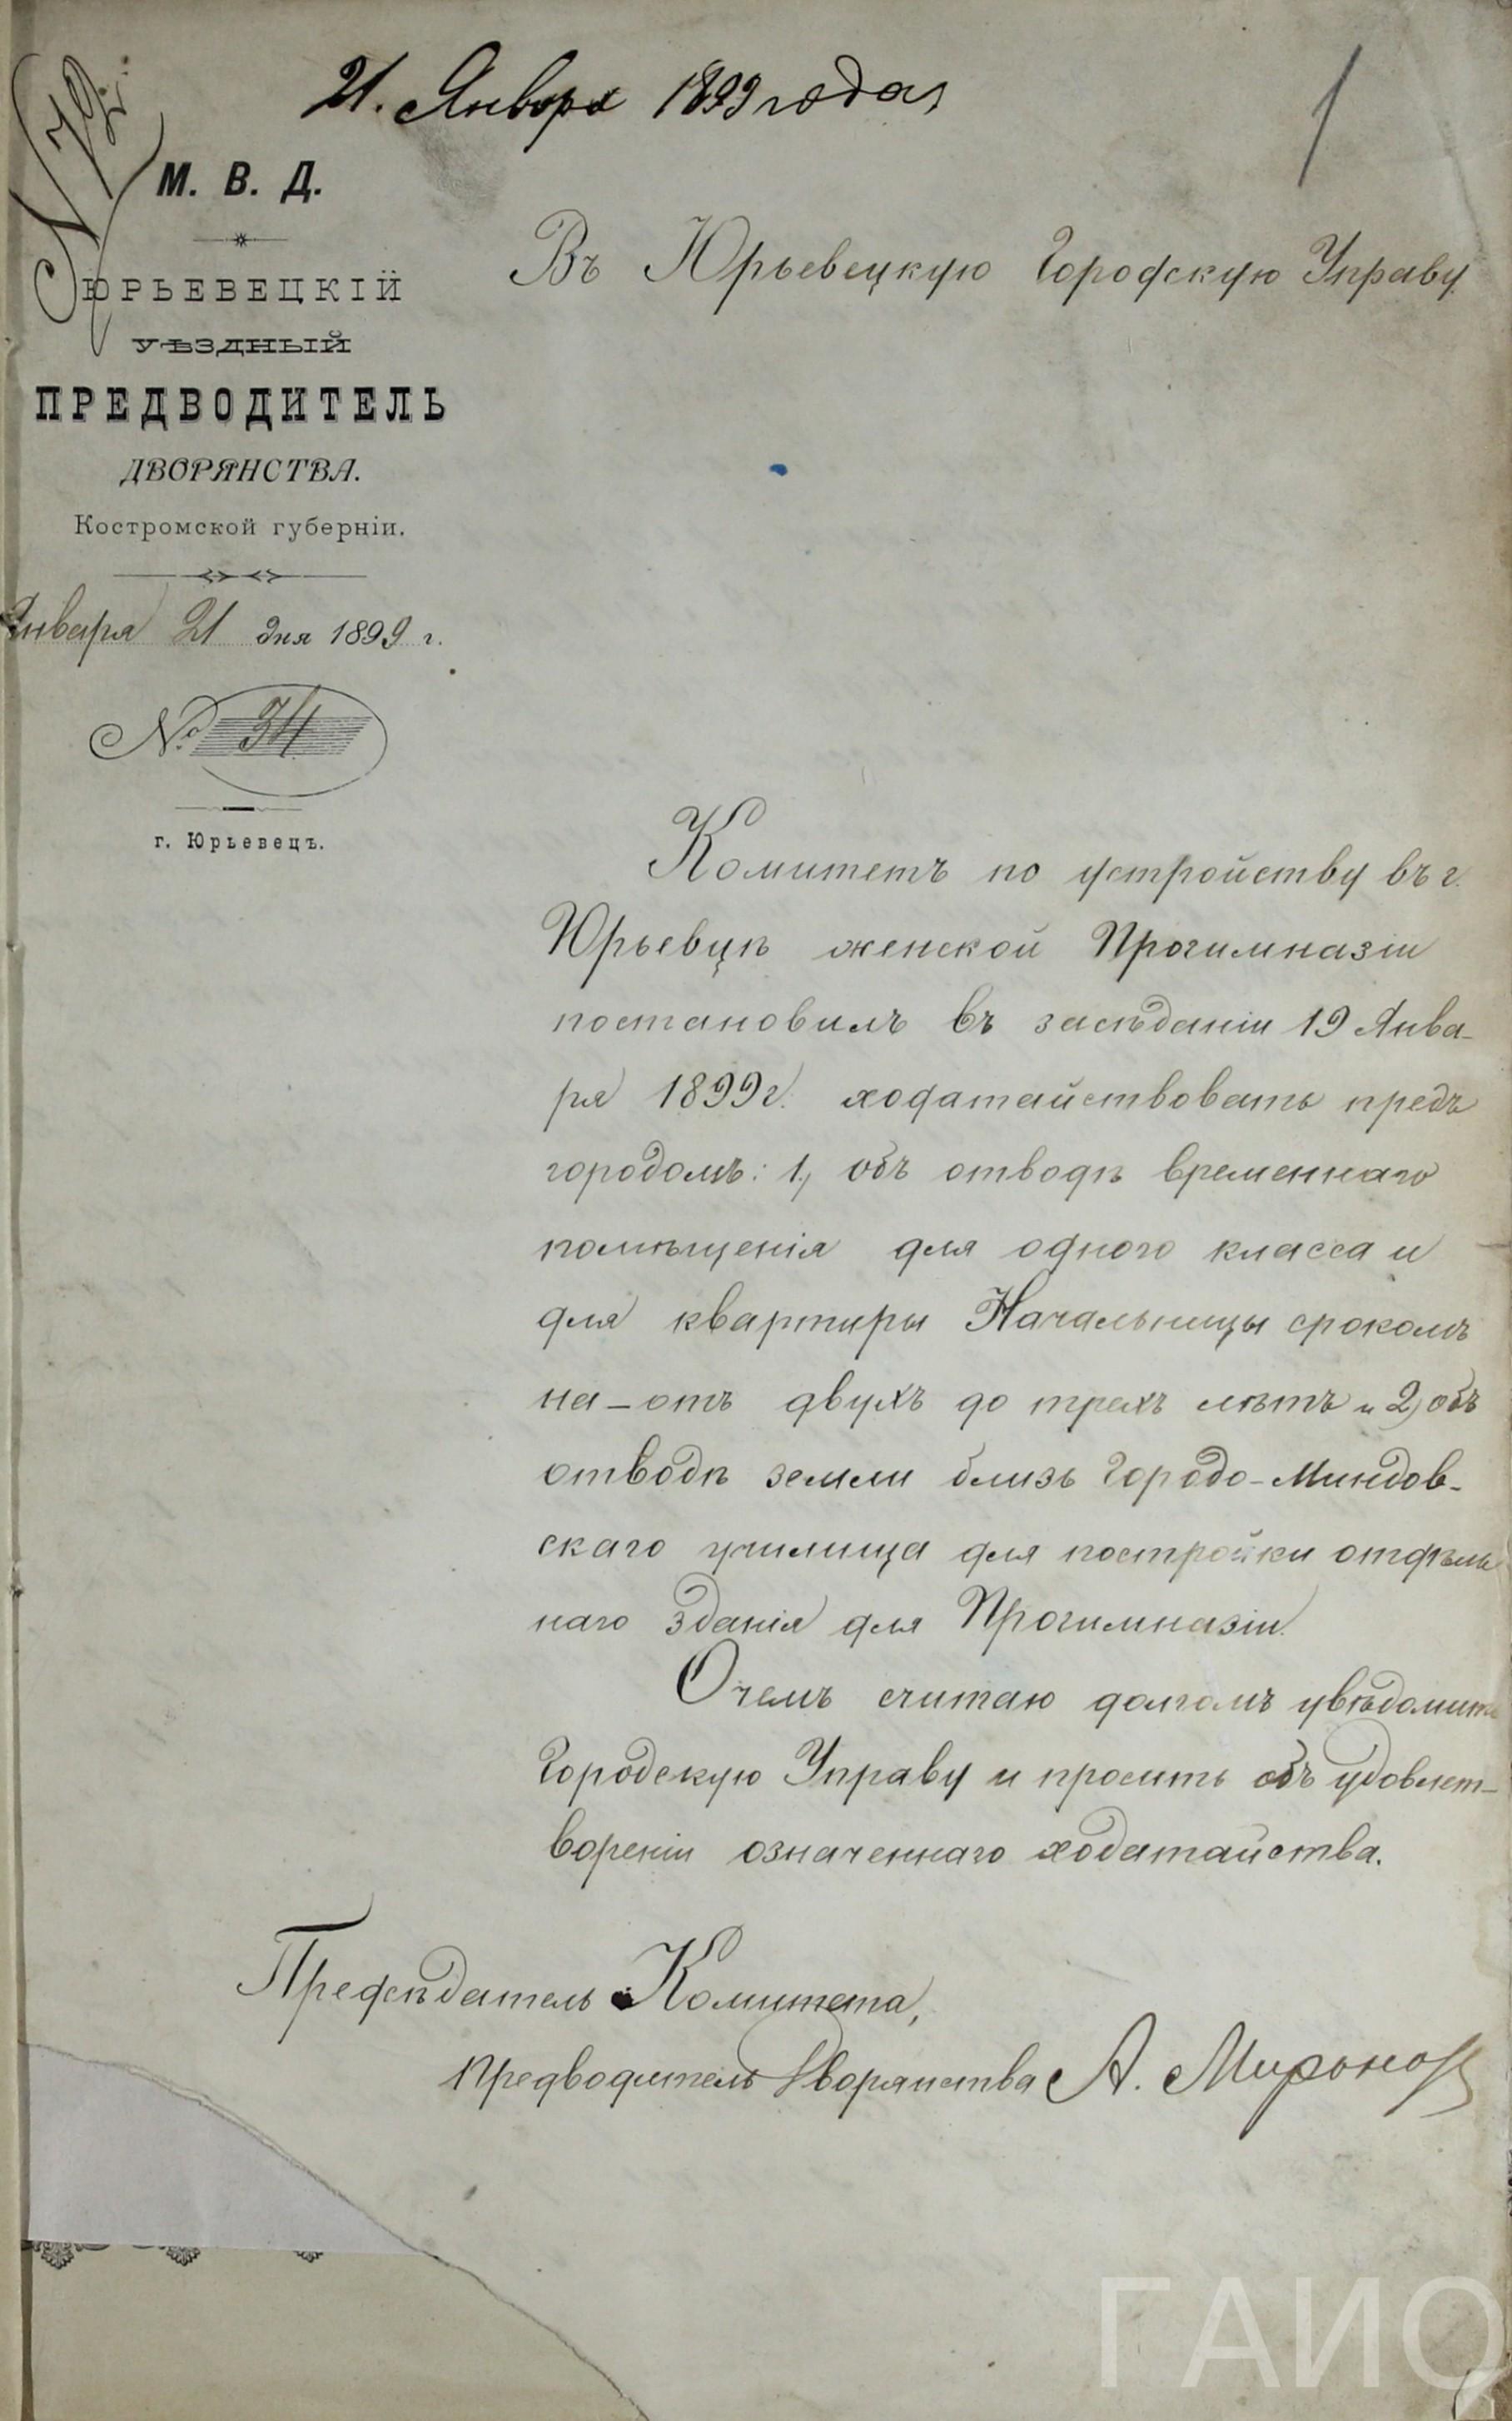 21. Января 1899 года
1
N 72.
М. В. Д.
ЮРЬЕВЕЦКІЙ
УѢЗДНЫЙ
ПРЕДВОДИТЕЛЬ
ДВОРЯНСТВА.
Костромской губерніи.
Января 21 дня 1899 г.
№ 34
г. Юрьевецъ.
Въ Юрьевецкую Городскую Управу.
Комитетъ по устройству въ г.
Юрьевцѣ женской Прогимназіи
постановилъ въ засѣданіи 19 Янва-
ря 1899 г. ходатайствовать предъ
городомъ: 1, объ отводѣ временнаго
помѣщенія для одного класса и
для квартиры Начальницы срокомъ
на-отъ двухъ до трехъ лѣтъ и 2) объ
отводѣ земли близь Городо-Миндов-
скаго училища для постройки отдѣль
наго зданія для Прогимназіи.
О чемъ считаю долгомъ увѣдомить
Городскую Управу и просить объ удовлет-
вореніи означеннаго ходатайства.
Предсѣдатель Комитета,
Предводитель Дворянства А. Миронов
ГАИО